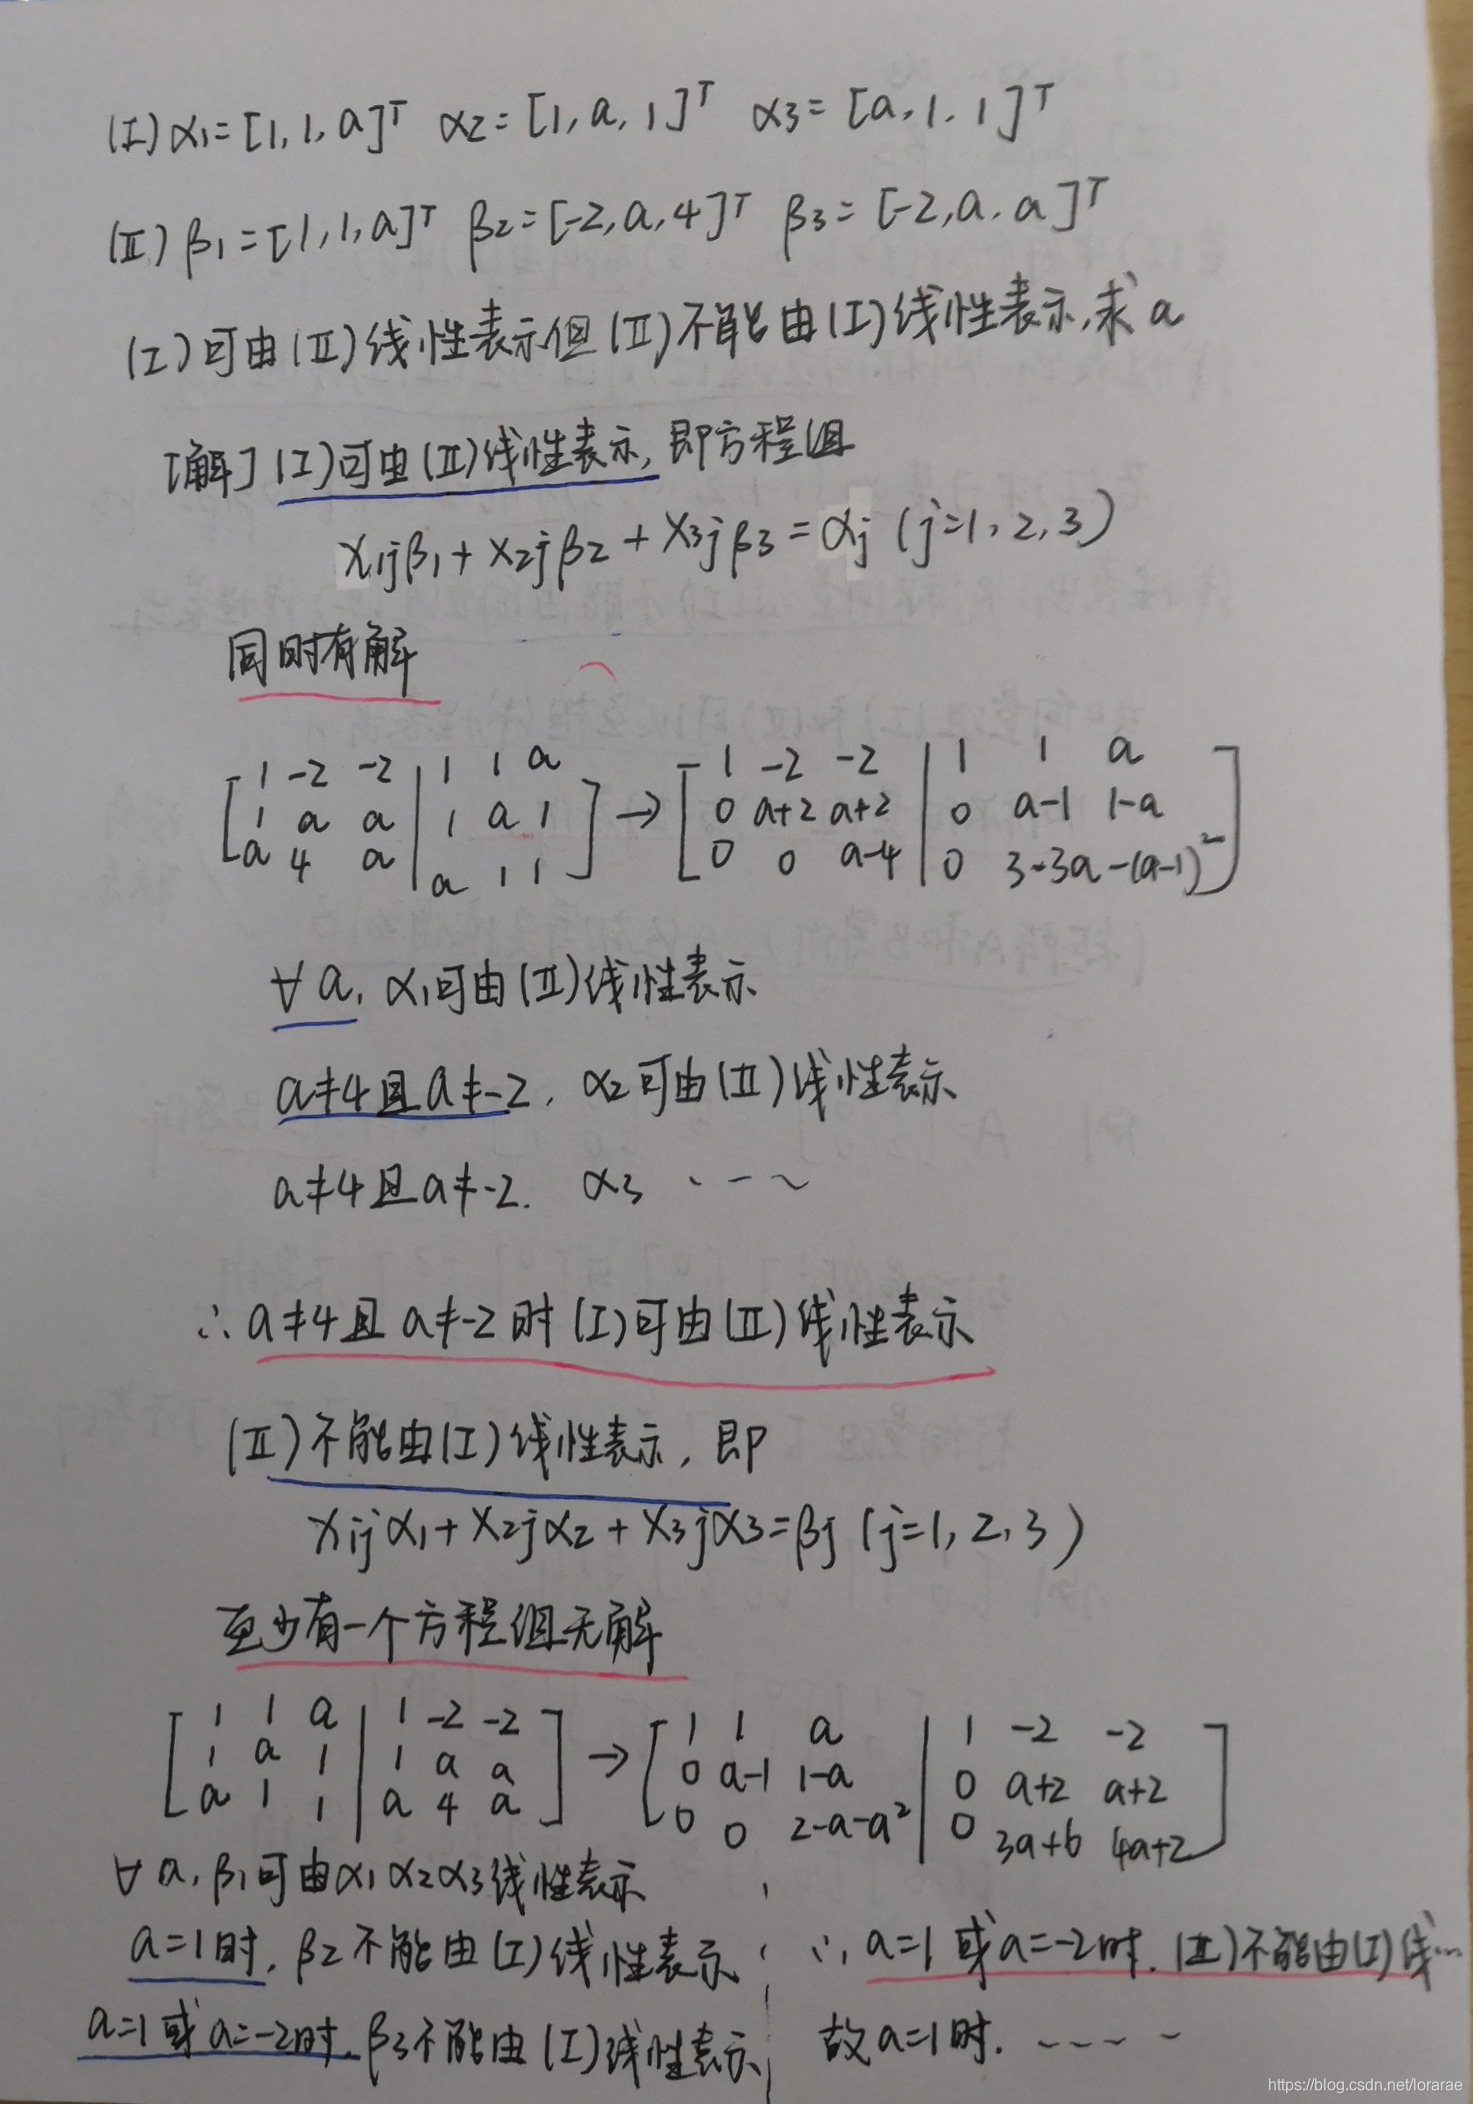 (I) α1=[1,1,a]ᵀ α2=[1,a,1]ᵀ α3=[a,1,1]ᵀ
(II) β1=[1,1,a]ᵀ β2=[-2,a,4]ᵀ β3=[-2,a,a]ᵀ
(I)可由(II)线性表示但(II)不能由(I)线性表示,求a
[解] (I)可由(II)线性表示,即方程组
x1jβ1+x2jβ2+x3jβ3=αj (j=1,2,3)
同时有解
[1 -2 -2 | 1 1 a] → [1 -2 -2 | 1 1 a]
[1 a a | 1 a 1] [0 a+2 a+2 | 0 a-1 1-a]
[a 4 a | a 1 1] [0 0 a-4 | 0 3-3a -(a-1)²]
∀a, α1可由(II)线性表示
a≠4且a≠-2, α2可由(II)线性表示
a≠4且a≠-2. α3 ----
∴a≠4且a≠-2时(I)可由(II)线性表示
(II)不能由(I)线性表示,即
x1jα1+x2jα2+x3jα3=βj (j=1,2,3)
至少有一个方程组无解
[1 1 a | 1 -2 -2] → [1 1 a | 1 -2 -2]
[1 a 1 | 1 a a] [0 a-1 1-a | 0 a+2 a+2]
[a 1 1 | a 4 a] [0 0 2-a-a² | 0 3a+6 4a+2]
∀a,β1可由α1α2α3线性表示
a=1时,β2不能由(I)线性表示
a=1或a=-2时,β3不能由(I)线性表示
∴a=1或a=-2时.(II)不能由(I)线…
故a=1时. ----
https://blog.csdn.net/lorarae